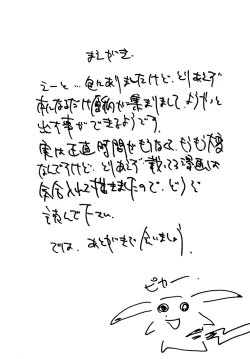 まえがき.
えーと…色々ありましたけど、とりあえず
おんなるだけ原稿が集まりまして、ようやっと
出す事ができるようです。
実は正直時間がもうなくて、もうも大変
なんですけど、とりあえず載ってる漫画は
気合入れて描きましたので、どうぞ
読んで下さい。
では、あとがきで会いましょう.
ピカー